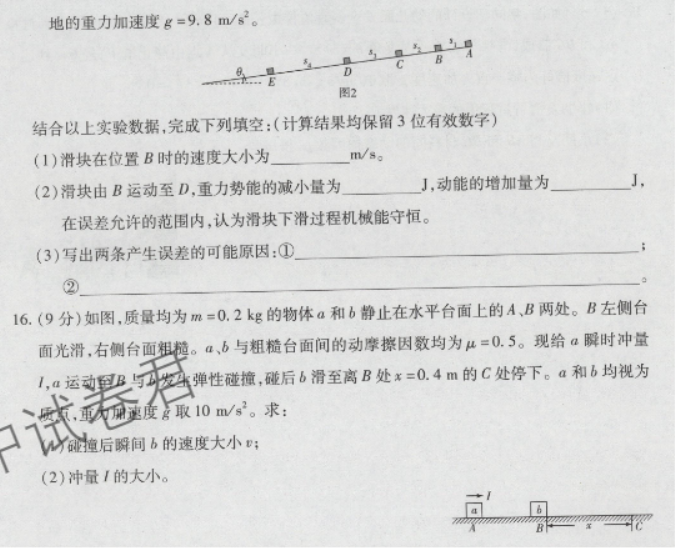 地的重力加速度 g=9.8 m/s²。
θ E s₄ D s₃ C s₂ B s₁ A
图2
结合以上实验数据,完成下列填空:(计算结果均保留3位有效数字)
(1)滑块在位置B时的速度大小为________m/s。
(2)滑块由B运动至D,重力势能的减小量为________J,动能的增加量为________J,
在误差允许的范围内,认为滑块下滑过程机械能守恒。
(3)写出两条产生误差的可能原因:①________________________________;
②________________________________。
16.(9分)如图,质量均为m=0.2 kg的物体a和b静止在水平台面上的A、B两处。B左侧台
面光滑,右侧台面粗糙。a、b与粗糙台面间的动摩擦因数均为μ=0.5。现给a瞬时冲量
I,a运动至B与b发生弹性碰撞,碰后b滑至离B处x=0.4 m的C处停下。a和b均视为
质点,重力加速度g取10 m/s²。求:
(1)碰撞后瞬间b的速度大小v;
(2)冲量I的大小。
I
a b
A B x C
试卷君